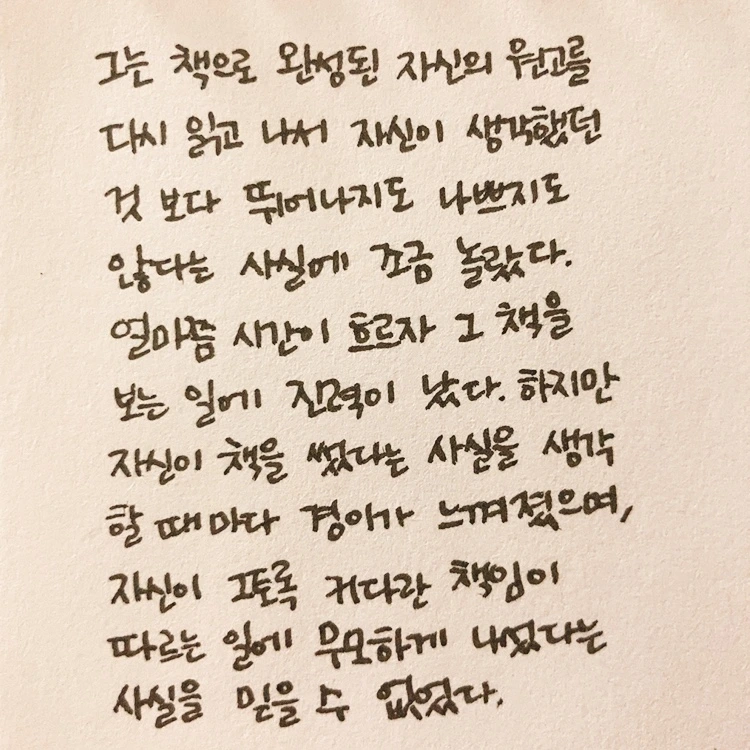 그는 책으로 완성된 자신의 원고를
다시 읽고 나서 자신이 생각했던
것 보다 뛰어나지도 나쁘지도
않다는 사실에 조금 놀랐다.
얼마쯤 시간이 흐르자 그 책을
보는 일에 진력이 났다. 하지만
자신이 책을 썼다는 사실을 생각
할 때마다 경이가 느껴졌으며,
자신이 그토록 커다란 책임이
따르는 일에 무모하게 나섰다는
사실을 믿을 수 없었다.